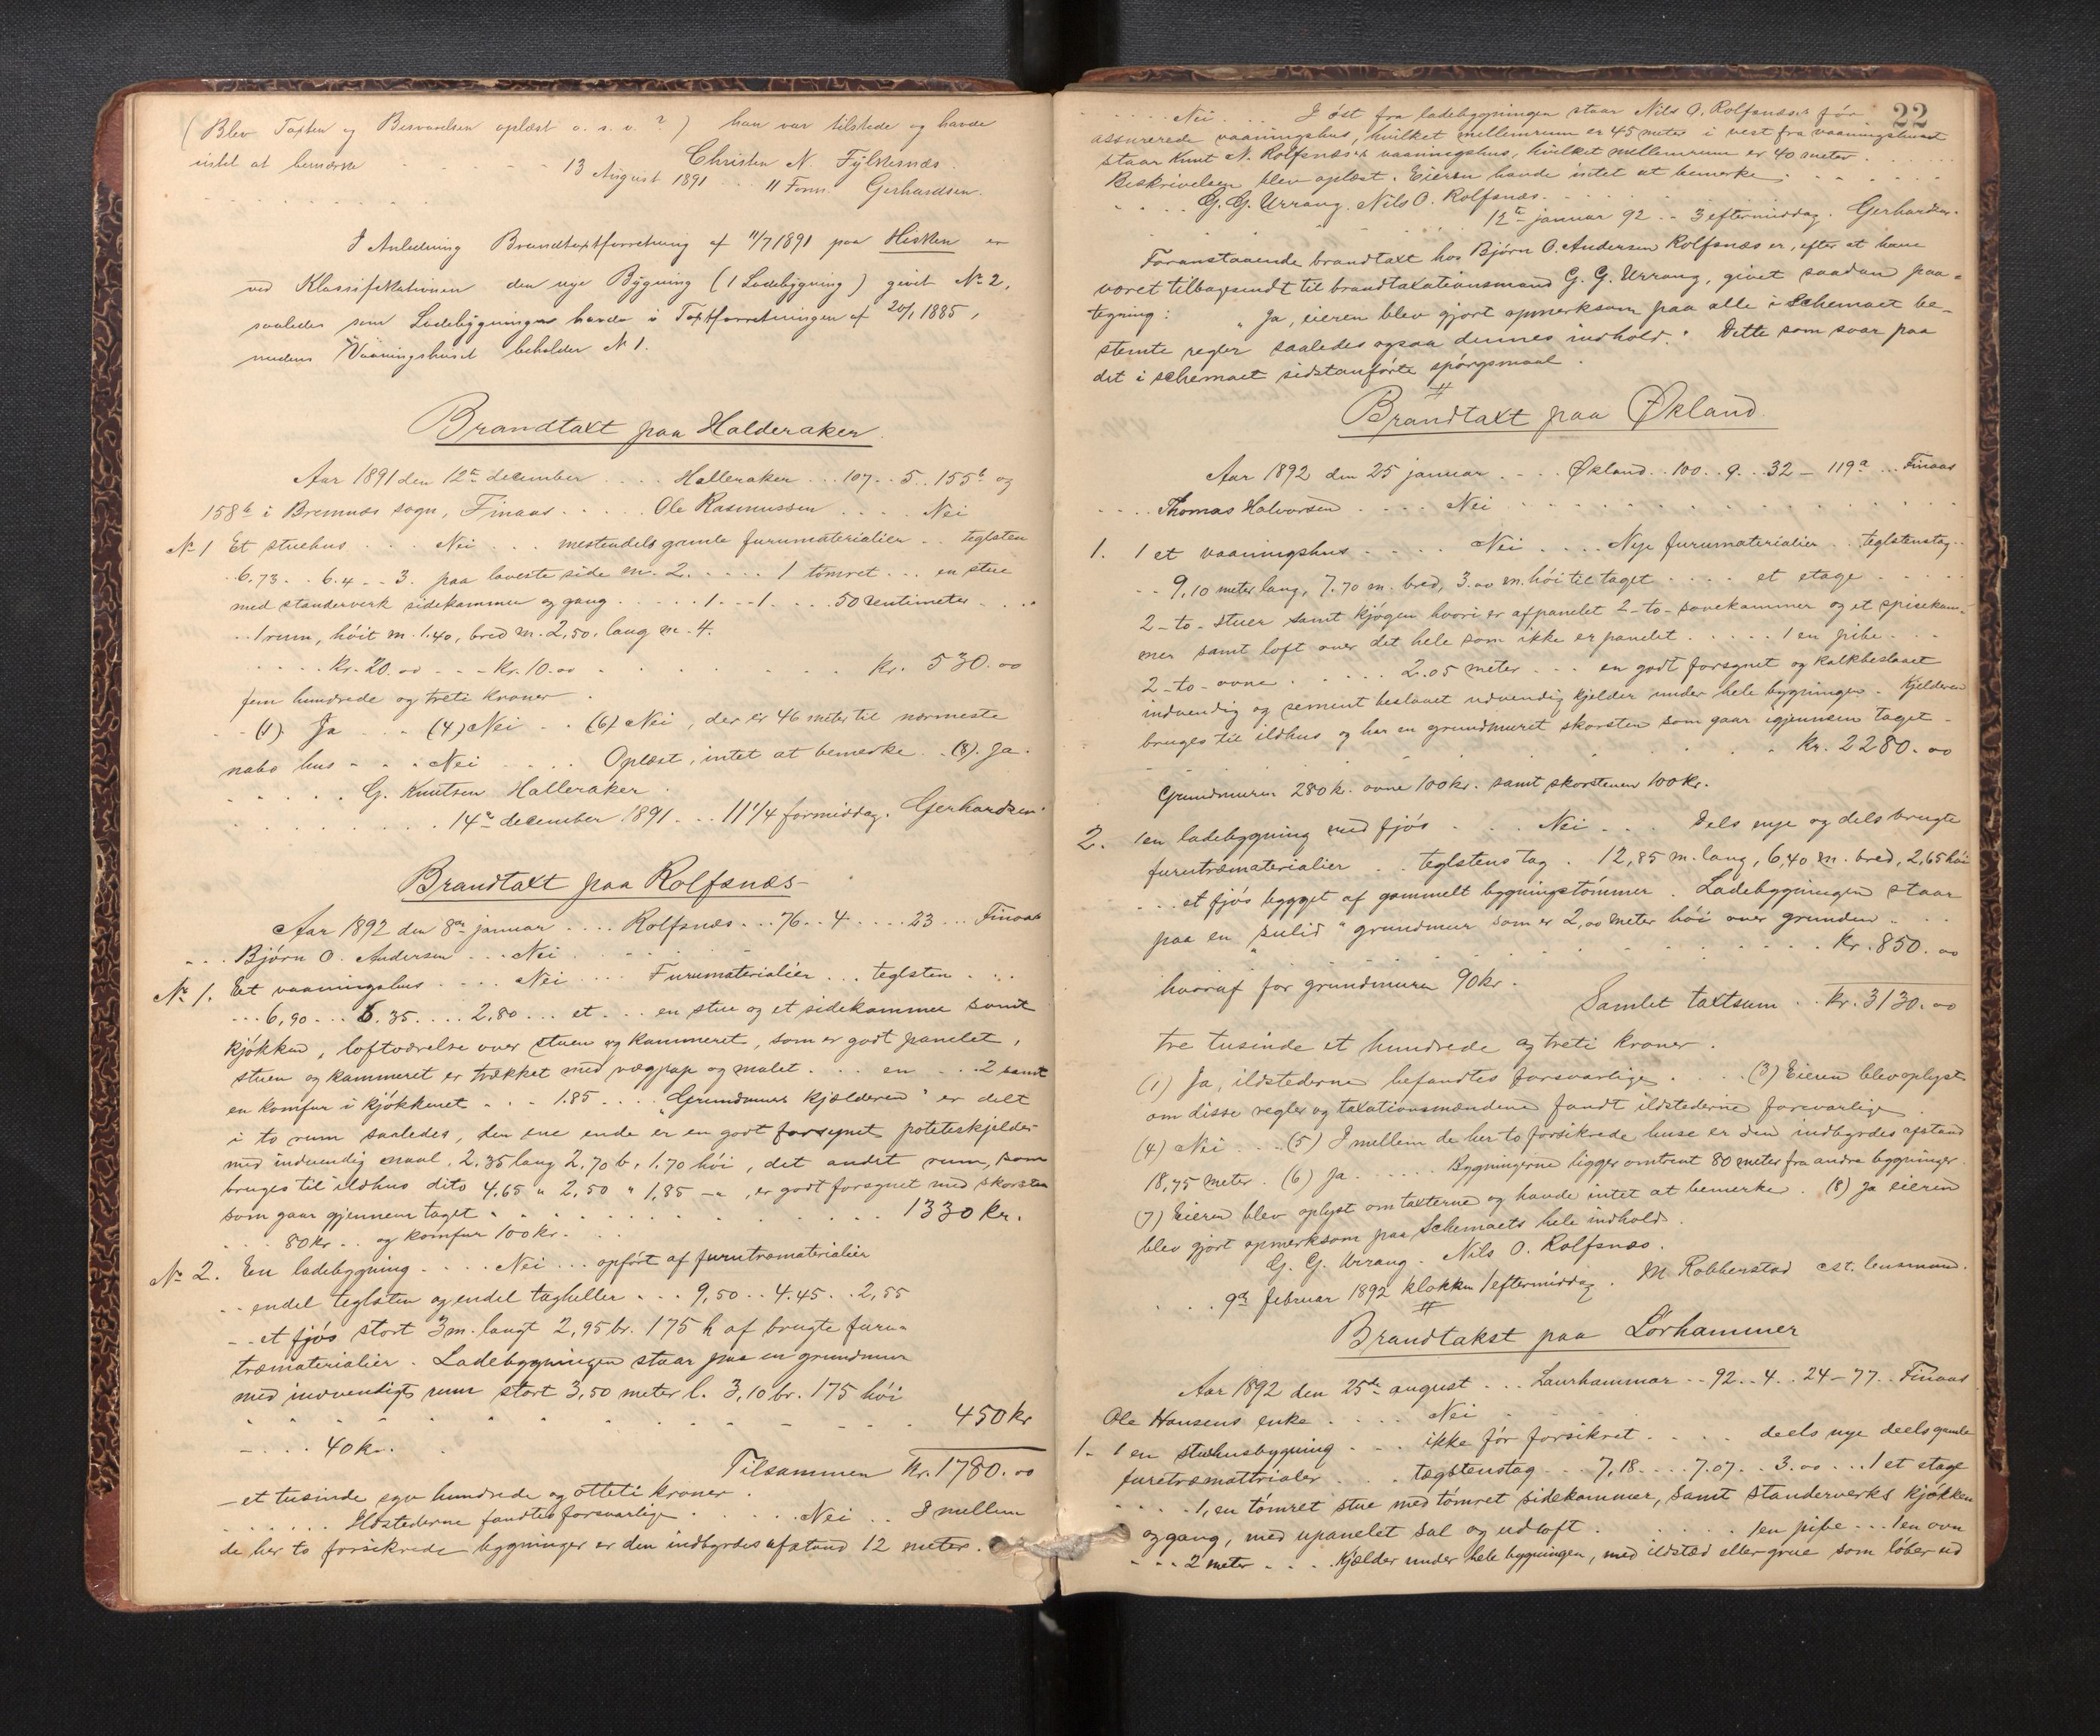 (Blev Taxten og Besvarelsen oplæst o. s. v. ?) han var tilstede og havde
intet at bemærke - - - Christen N. Fylkesnæs.
13 August 1891 . . 11 Form. Gerhardsen.
I Anledning Brandtaxtforretning af 11/7 1891 paa Hisken er
ved Klassifikationen den nye Bygning (1 Ladebygning) givet No 2,
saaledes som Ladebygningen havde i Taxtforretningen af 20/1 1885,
medens Vaaningshuset beholder N 1.
Brandtaxt paa Halderaker.
Aar 1891 den 12te december . . . . Halleraker . . . 107 . . 5 . . 155b og
158b i Bremnæs sogn, Finaas . . . . . Ole Rasmussen . . . . Nei
No 1 Et stuehus . . . Nei . . . mestendels gamle furumaterialier . . teglsten
. . 6.73 . . 6.4 . . 3. paa laveste side m. 2. . . . . 1 tømret . . . en stue
med standerverk sidekammer og gang . . . . . 1 . . . 1 . . . . 50 Centimeter . . . .
. . 1 rum, høit m. 1.40, bred m. 2,50, lang m. 4.
. . . . . Kr. 20.00 - - - Kr. 10.00 . . . . . kr. 530.00
fem hundrede og treti kroner .
- - (1) Ja . . . (4) Nei . . (6) Nei, der er 46 meter til nærmeste
nabo hus - - . Nei . . . . Oplæst, intet at bemerke . . (8). Ja.
. . . . . G. Knutsen Halleraker .
. . . . . . . 14de december 1891 . . . 11 1/4 formiddag. Gerhardsen.
Brandtaxt paa Rolfsnæs-
Aar 1892 den 8de januar . . . . Rolfsnæs . . . 76 . . 4 . . . . 23 . . . Finaas
- . . . Bjørn O. Andersen . . . Nei . . . .
No 1. Et vaaningshus . . . . Nei . . . . Furumaterialier . . . teglsten . . . .
. . . 6,90 . . . 5.35 . . . . 2,80 . . . et . . . en stue og et sidekammer samt
kjøkken, loftværelse over stuen og kammeret, som er godt panelet,
stuen og kammeret er trækket med vægpap og malet . . . en . . . 2 samt
en komfur i kjøkkenet . . . 1.85 . . . . "Grundmuren kjælderen" er delt
i to rum saaledes, den ene ende er en godt forsynet poteteskjelder
med indvendig maal, 2,35 lang 2,70 b. 1,70 høi, det andet rum, som
bruges til ildhus dito 4,65 " 2,50 " 1,85 -"-, er godt forsynet med skorsten
som gaar gjennem taget . . . . . . . . 1330 kr.
. . . . 80 kr . . og komfur 100 kr. . . .
No 2. En ladebygning . . . . Nei . . . opført af furutræmaterialier
. . endel teglsten og endel tagheller . . . 9,50 . . 4.45 . . 2,55
- - et fjøs stort 3 m. langt 2,95 br. 175 h af brugte furu-
træmaterialier. Ladebygningen staar paa en grundmur
med indvendigt rum stort 3,50 meter l. 3,10 br. 175 høi
. . . . . . . . . 450 kr
- . . . 40 kr. .
Tilsammen Kr. 1780.00
- et tusinde syv hundrede og otteti kroner .
. . . . . . Ildstederne fandtes forsvarlige . . . . . Nei . . I mellem
de her to forsikrede bygninger er den indbyrdes afstand 12 meter.
22
. . . . . Nei . . . . I øst fra ladebygningen staar Nils O. Rolfsnæs's før
assurerede vaaningshus, hvilket mellemrum er 45 meter i vest fra vaaningshuset
staar Knut N. Rolfsnæs's vaaningshus, hvilket mellemrum er 40 meter . . . . .
Beskrivelsen blev oplæst. Eieren havde intet at bemerke . . . . .
. . . . G. G. Urrang. Nils O. Rolfsnæs. . . . .
12te januar 92 . . 3 eftermiddag. Gerhardsen.
Foranstaaende brandtaxt hos Bjørn O. Andersen Rolfsnæs er, efter at have
været tilbagesendt til brandtaxationsmand G. G. Urrang, givet saadan paa-
tegning: "Ja, eieren blev gjort opmerksom paa alle i Schemaet be-
stemte regler saaledes ogsaa dennes indhold." Dette som svar paa
det i schemaet sidstanførte spørgsmaal.
Brandtaxt paa Økland.
Aar 1892 den 25 januar . . . . Økland . . 100 . . 9 . . 32 - 119a . . . Finaas
. . . . Thomas Halvorsen . . . . Nei . . . . . .
1. 1 et vaaningshus . . . . . Nei . . . . Nye furumaterialier . . teglstenstag . .
. . 9,10 meter lang, 7.70 m. bred, 3.00 m. høi til taget . . . . et etage . . . . .
2-to-stuer samt kjøgen hvori er afpanelet 2-to-sovekammer og et spisekam-
mer samt loft over det hele som ikke er panelet . . . . . 1 en pibe . . . .
2-to-ovne . . . . . 2.05 meter . . . en godt forsynet og kalkbeslaaet
indvendig og sement beslaaet udvendig kjelder under hele bygningen. Kjelderen
bruges til ildhus og har en grundmuret skorsten som gaar igjennem taget -
. . . . . . kr. 2280.00
Grundmuren 280 k. ovne 100 kr. samt skorstenen 100 kr.
2. 1 en ladebygning med fjøs . . . Nei . . . Dels nye og dels brugte
furutræmaterialier . . teglstens tag . 12,85 m. lang, 6,40 m. bred, 2,65 høi
. . . . et fjøs bygget af gammelt bygningstømmer. Ladebygningen staar
paa en "sulid" grundmur som er 2,00 meter høi over grunden . . .
. . . . . . Kr. 850.00
hvoraf for grundmuren 90 kr.
Samlet taxtsum . . kr. 3130.00
tre tusinde et hundrede og treti kroner.
(1) Ja, ildstederne befandtes forsvarlige . . . . (3) Eieren blev oplyst
om disse regler og taxationsmændene fandt ildstederne forsvarlige .
(4) Nei . . . . (5) I mellem de her to forsikrede huse er den indbyrdes afstand
18,75 meter. (6) Ja . . . . . Bygningerne ligger omtrent 80 meter fra andre bygninger.
(7) Eieren blev oplyst om taxterne og havde intet at bemerke. (8) Ja eieren
blev gjort opmerksom paa Schemaets hele indhold.
G. G. Urrang. Nils O. Rolfsnæs.
. . . 9de februar 1892 klokken 1 eftermiddag. M Robberstad cst. lensmand.
Brandtakst paa Lørhammer
Aar 1892 den 25de august . . . Laurhammar . . 92 . . 4 . . 24 - 77 . . Finaas
Ole Hansens enke . . . . Nei
1. 1 en stuehusbygning . . . ikke før forsikret . . . . deels nye deels gamle
furetræmattrialer . . . tægstenstag . . . 7,18 . . . . 7.07 . . 3.00 . . . 1 et etage
. . . . 1, en tømret stue med tømret sidekammer, samt standerverks kjøkken
og gang, med upanelet sal og udloft . . . . . . 1 en pibe . . . 1 en ovn
- - - 2 meter . . . . Kjælder under hele bygningen, med ildsted eller grue som løber ud